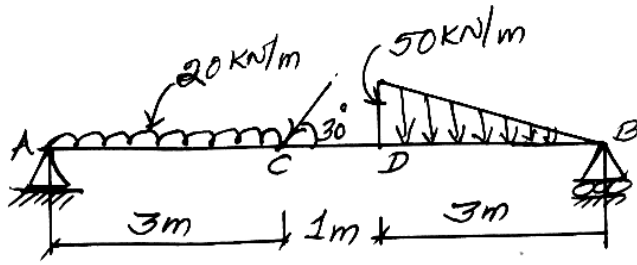 20KN/m
50KN/m
A
30°
B
C
D
3m
1m
3m